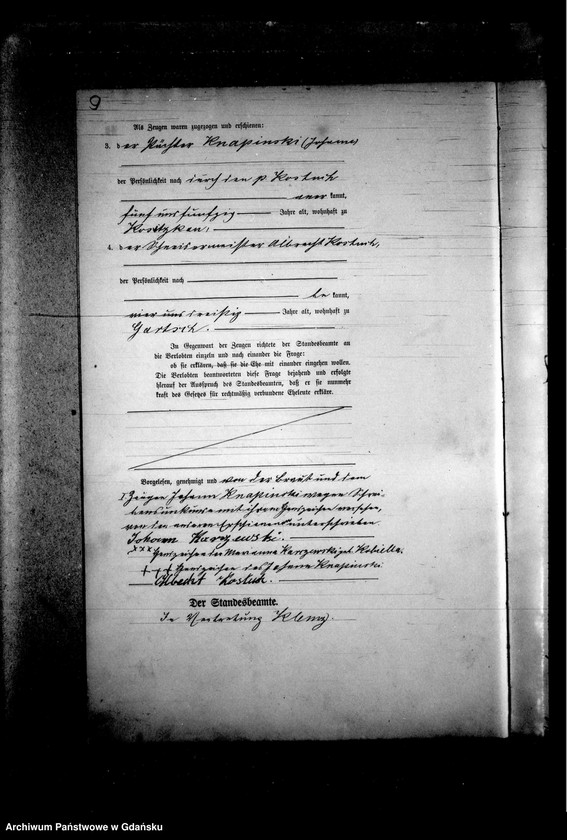 9
Als Zeugen waren zugezogen und erschienen:
3. der Pächter Knapinski (Johann)
der Persönlichkeit nach durch den p Kostuch
aner kannt,
fünf und funfzig Jahre alt, wohnhaft zu
4. der Schneidermeister Albrecht Kostuch,
der Persönlichkeit nach
be kannt,
vier und dreißig Jahre alt, wohnhaft zu
Gartsch.
In Gegenwart der Zeugen richtete der Standesbeamte an
die Verlobten einzeln und nach einander die Frage:
ob sie erklären, daß sie die Ehe mit einander eingehen wollen.
Die Verlobten beantworteten diese Frage bejahend und erfolgte
hierauf der Ausspruch des Standesbeamten, daß er sie nunmehr
kraft des Gesetzes für rechtmäßig verbundene Eheleute erkläre.
Vorgelesen, genehmigt und von der Braut und dem
Zeugen Johann Knapinski wegen Schrei-
bensunkunde mit ihren Handzeichen versehen,
von den anderen Erschienenen unterschrieben
Johann Karzewski.
xxx Handzeichen der Marianna Karzewski geb. Kobiella.
+++ Handzeichen des Johann Knapinski
Albrecht Kostuch.
Der Standesbeamte.
In Vertretung
Archiwum Państwowe w Gdańsku